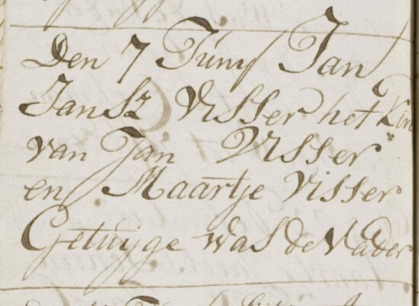 Den 7 Juny Jan
Jansz Visser het kin
van Jan Visser
en Maartje Visser
Getuijge was de Vader